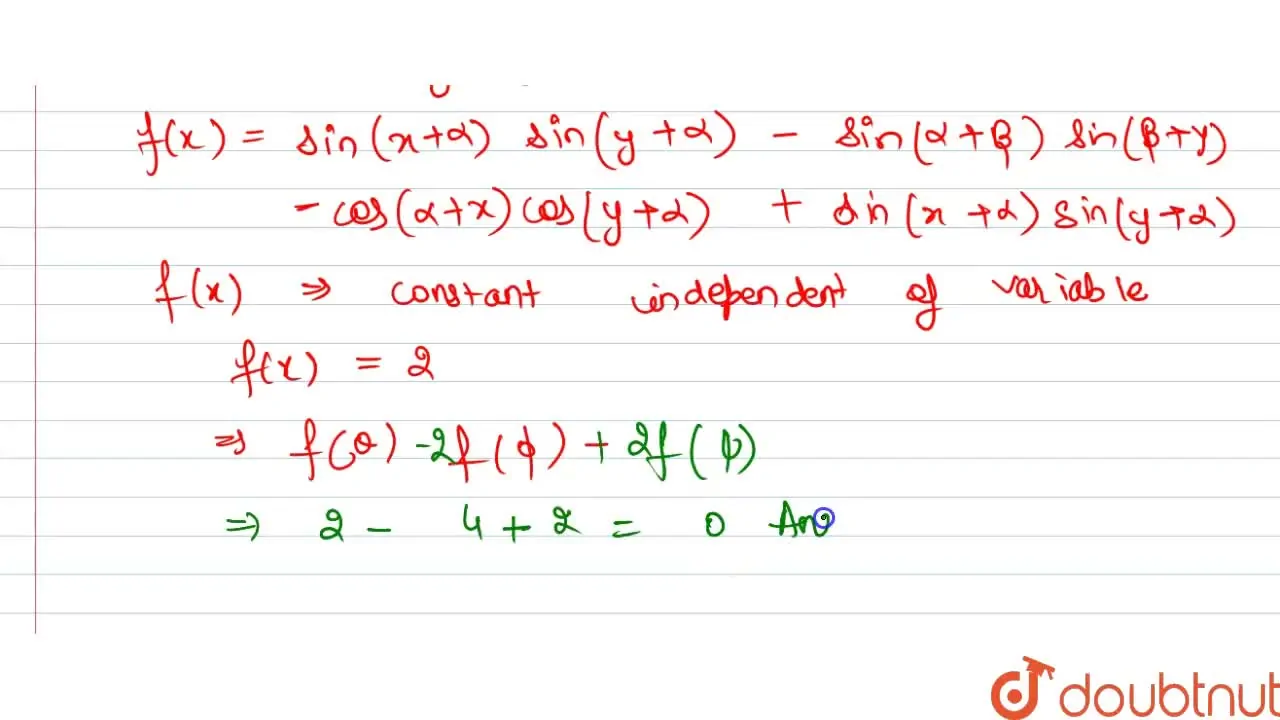 f(x) = sin(x+α) sin(y+α) - sin(α+β) sin(β+γ)
- cos(α+x) cos(y+α) + sin(x+α) sin(y+α)
f(x) ⇒ constant independent of variable
f(x) = 2
⇒ f(θ) -2f(ϕ) + 2f(ψ)
⇒ 2 - 4 + 2 = 0 Ans
doubtnut